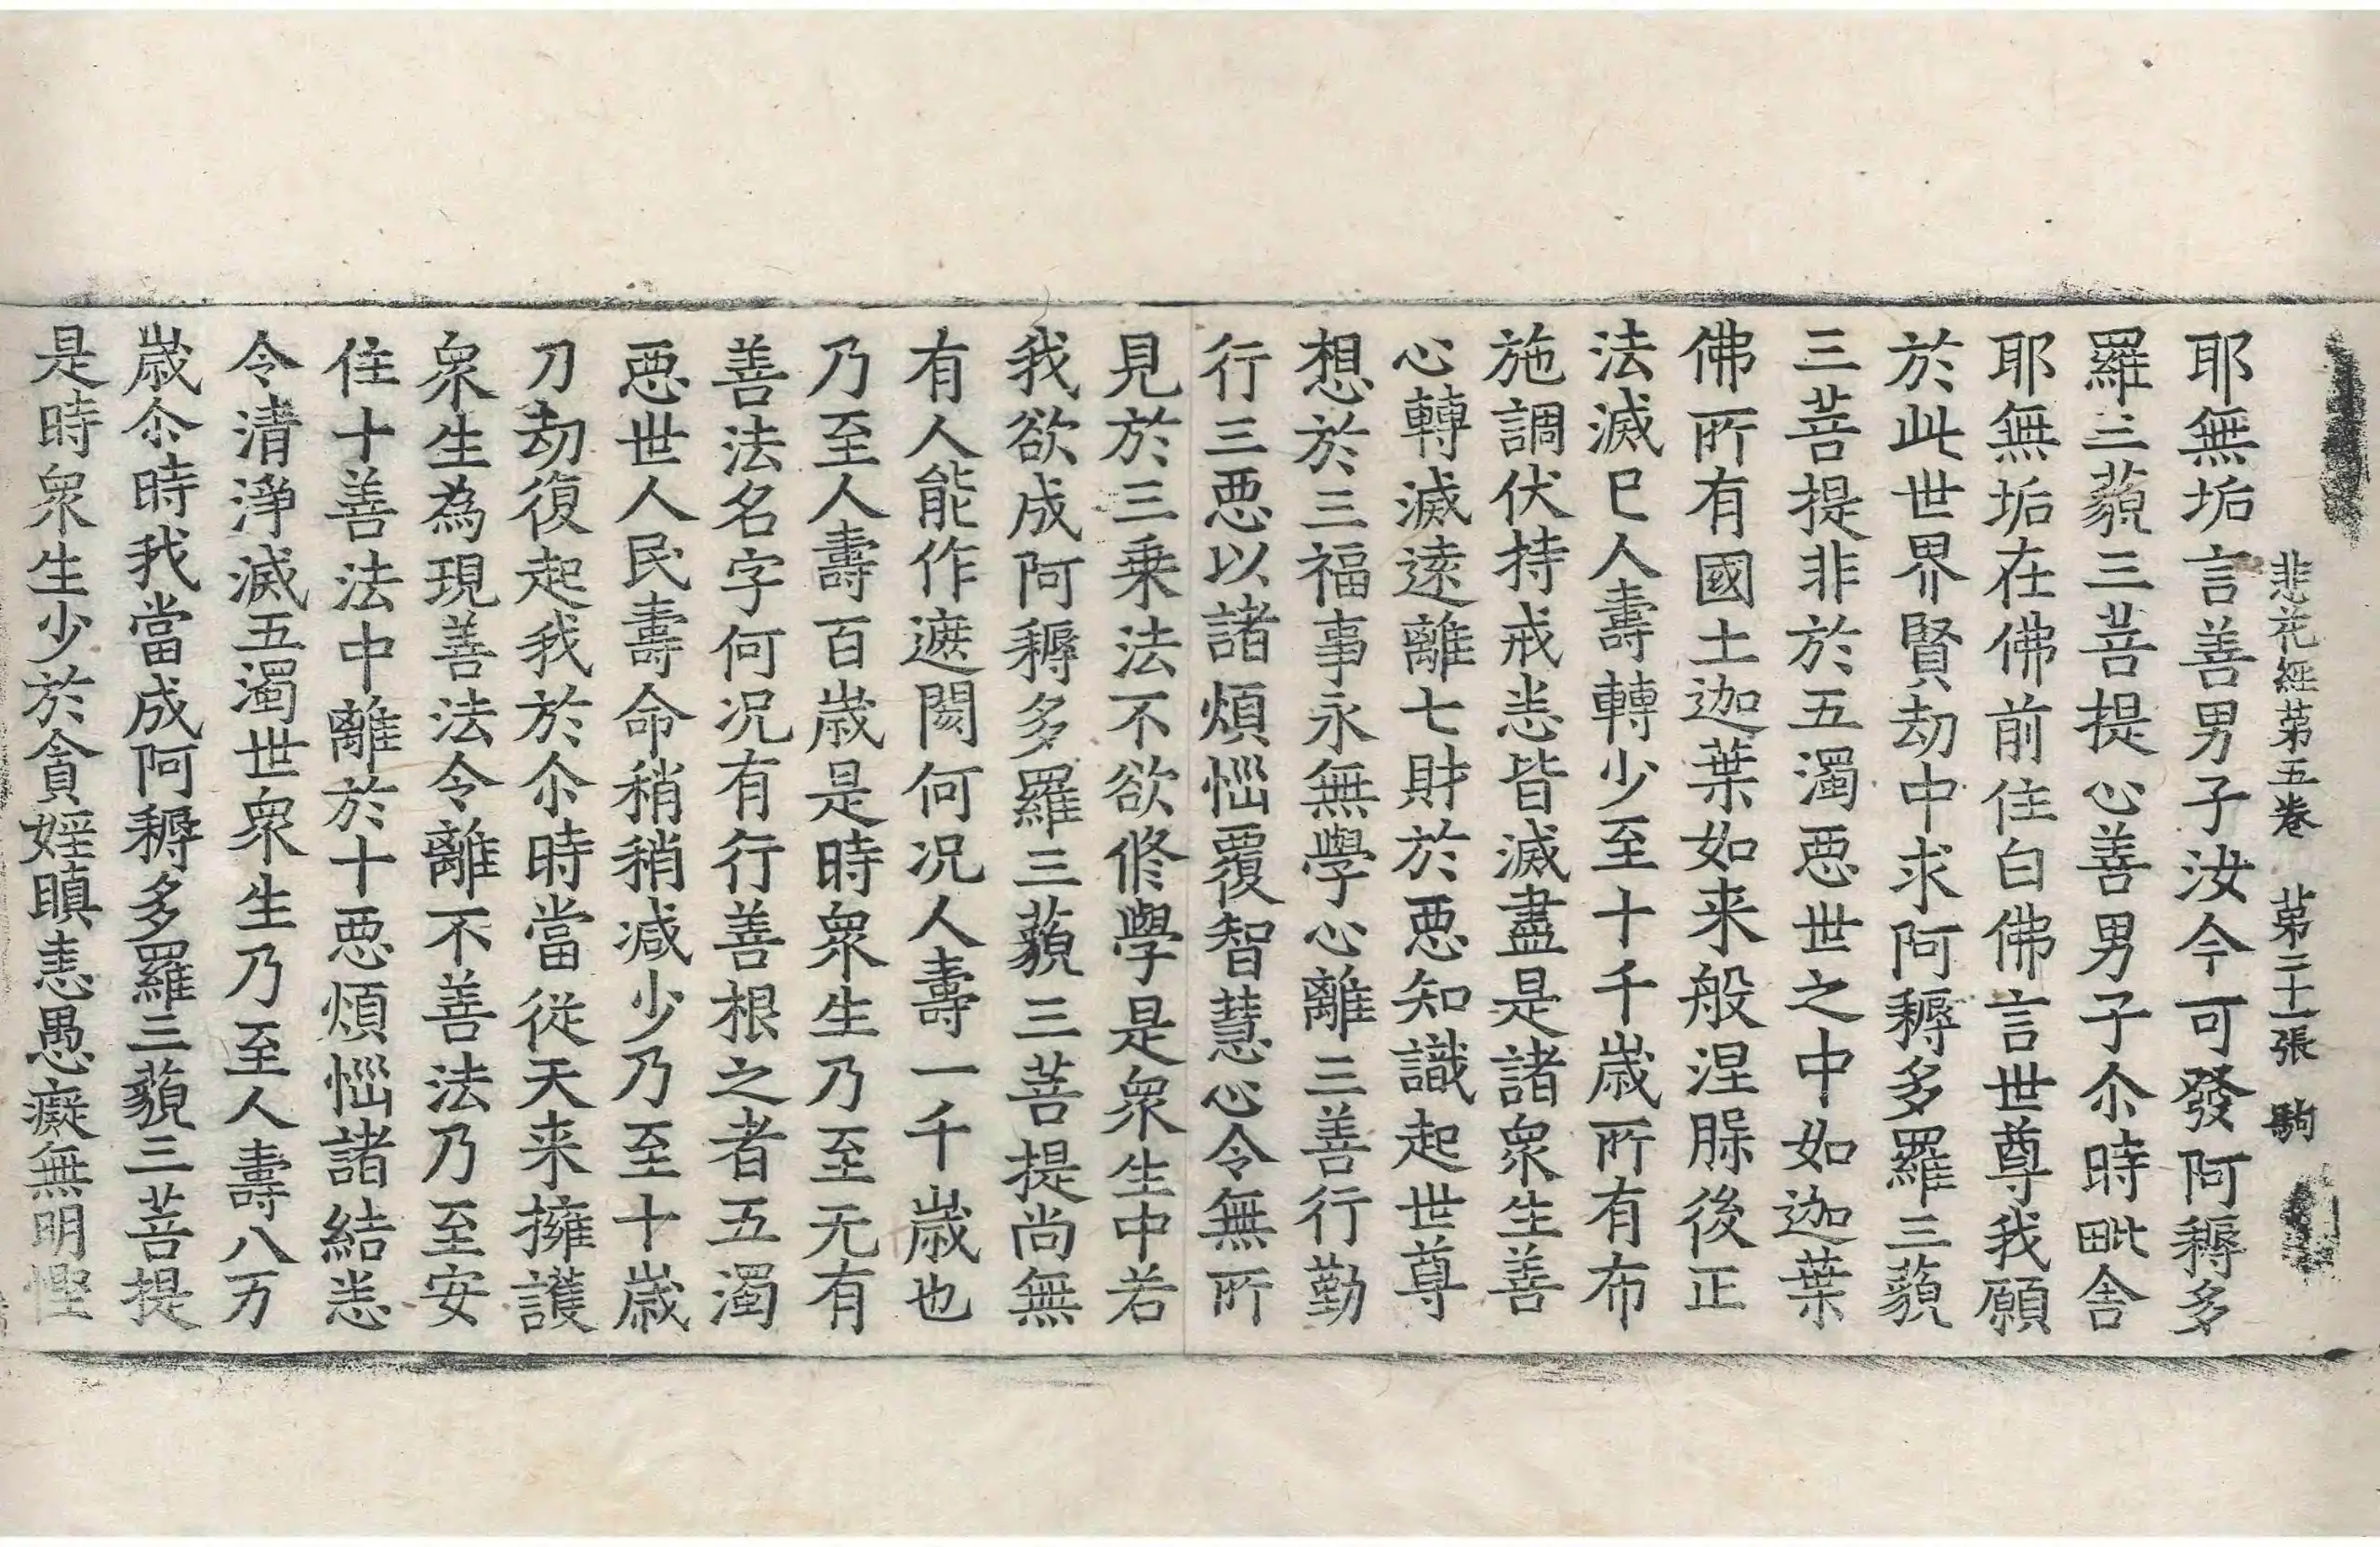 悲花經第五卷 第二十一張 駒
耶無垢言善男子汝今可發阿耨多
羅三藐三菩提心善男子尒時毗舍
耶無垢在佛前住白佛言世尊我願
於此世界賢劫中求阿耨多羅三藐
三菩提非於五濁惡世之中如迦葉
佛所有國土迦葉如来般涅槃後正
法滅已人壽轉少至十千歲所有布
施調伏持戒悉皆滅盡是諸衆生善
心轉滅遠離七財於惡知識起世尊
想於三福事永無學心離三善行勤
行三惡以諸煩惱覆智慧心令無所
見於三乗法不欲修學是衆生中若
我欲成阿耨多羅三藐三菩提尚無
有人能作遮閡何况人壽一千歲也
乃至人壽百歲是時衆生乃至无有
善法名字何况有行善根之者五濁
惡世人民壽命稍稍減少乃至十歲
刀劫復起我於尒時當從天来擁護
衆生為現善法令離不善法乃至安
住十善法中離於十惡煩惱諸結悉
令清淨滅五濁世衆生乃至人壽八万
歲尒時我當成阿耨多羅三藐三菩提
是時衆生少於貪婬瞋恚愚癡無明慳